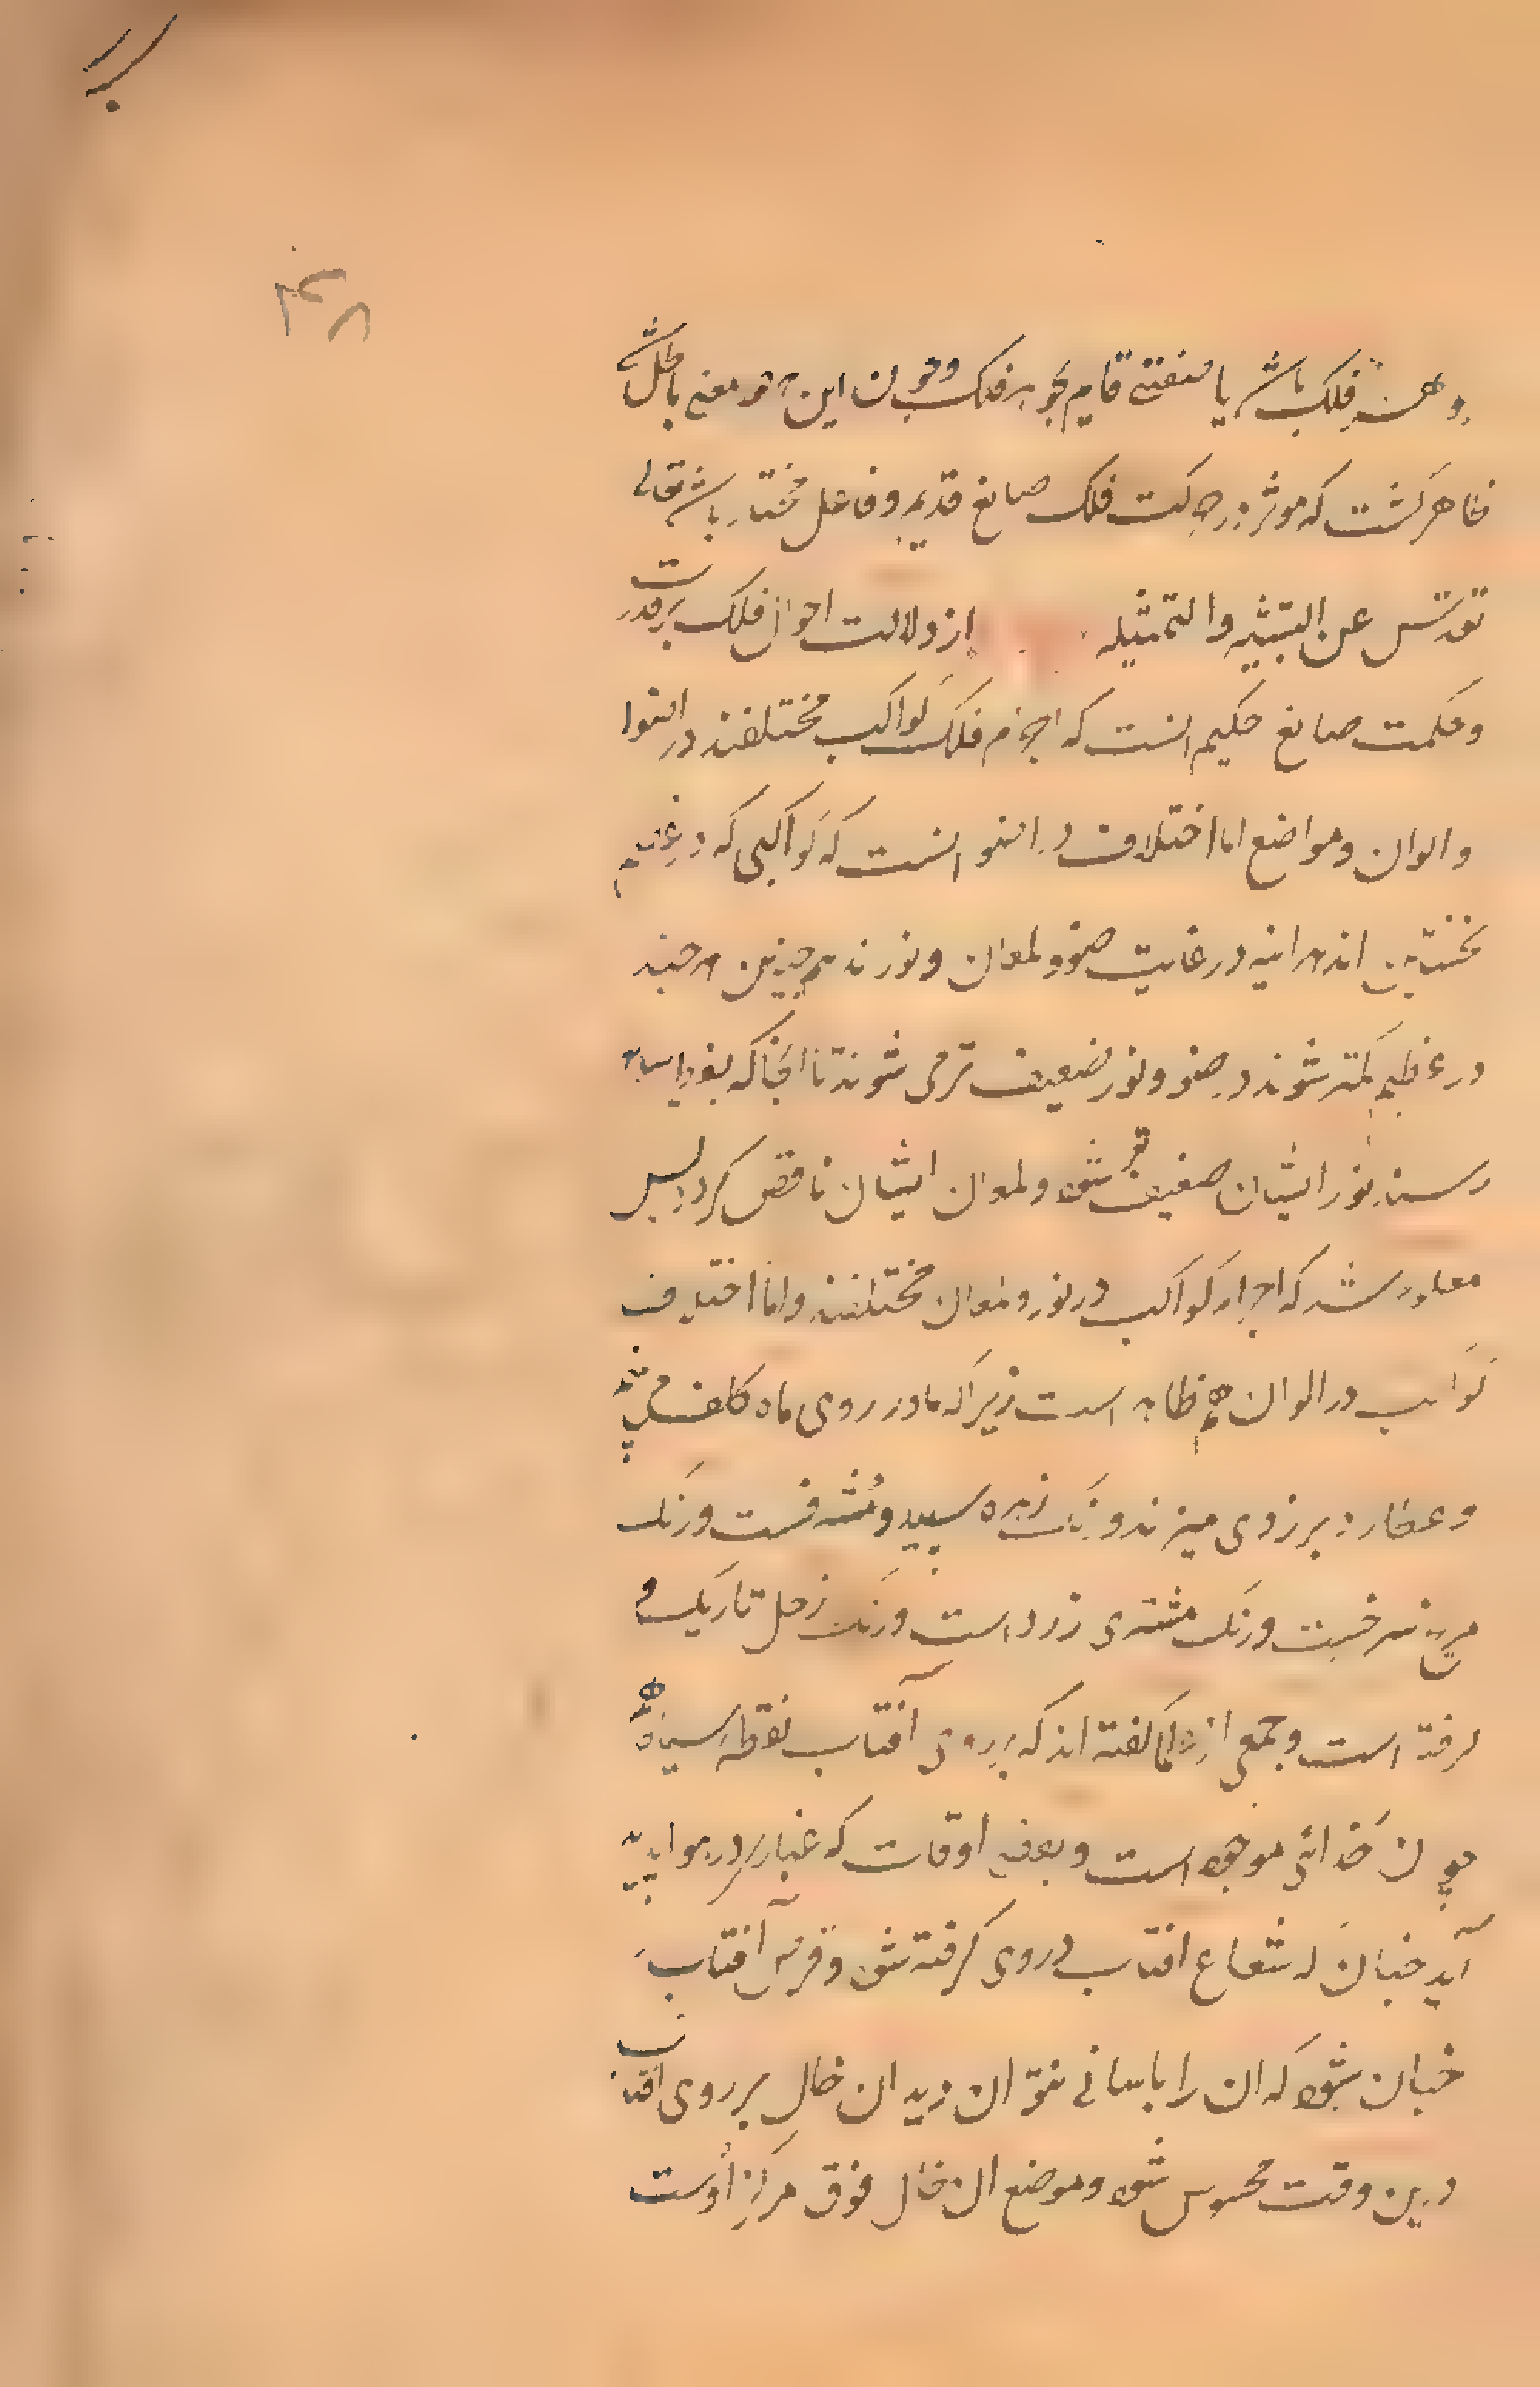 و هن فلک باشد یا صفتی قایم بجوهر فلک و چون این هر دو معنی باطل شد
ظاهر کشت که موثر در حرکت فلک صانع قدیم و فاعل مختار باشد تعالی
تقدس عن التشبیه والتمثیله از دلالت احوال فلک بر قدرت
و حکمت صانع حکیم انست که اجرام فلک کواکب مختلفند در اضوا
و الوان و مواضع اما اختلاف در اضوا انست که کواکبی که در عظم
نخستین اند هر اینه در غایت ضو و لمعان و نورند همچنین هر چند
در عظم کمتر شوند در ضو و نور ضعیف تر می شوند تا انجا که بغد
رسند نور ایشان ضعیف تر شود و لمعان ایشان ناقص کردد پس
معلوم شد که اجرام کواکب در نور و لمعان مختلفند و اما اختلاف
کواکب در الوان هم ظاهر است زیرا که ما در روی ماه کلف می
و عطارد بر زردی میزند و رنک زهره سپید و مشرقست و رنک
مریخ سرخست و رنک مشتری زرد است و رنک زحل تاریک و
گرفته است و جمعی از حکما گفته اند که بر روی آفتاب نقطه سیاه
چون خالی موجود است و بعضی اوقات که غباری در هوا پدید
آید چنان که شعاع افتاب در وی گرفته شود و قرص آفتاب
چنان شود که ان را باسانی بتوان دید ان خال بر روی افتاب
درین وقت محسوس شود و موضع ان خال فوق مرکز اوست